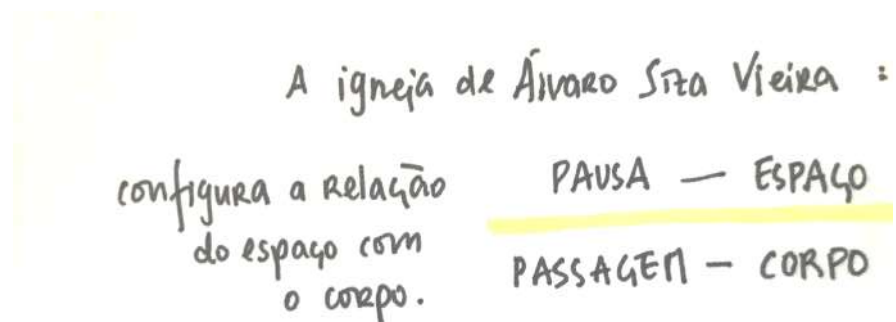 A igreja de Álvaro Siza Vieira :
configura a relação
do espaço com
o corpo.
PAUSA — ESPAÇO
PASSAGEM — CORPO